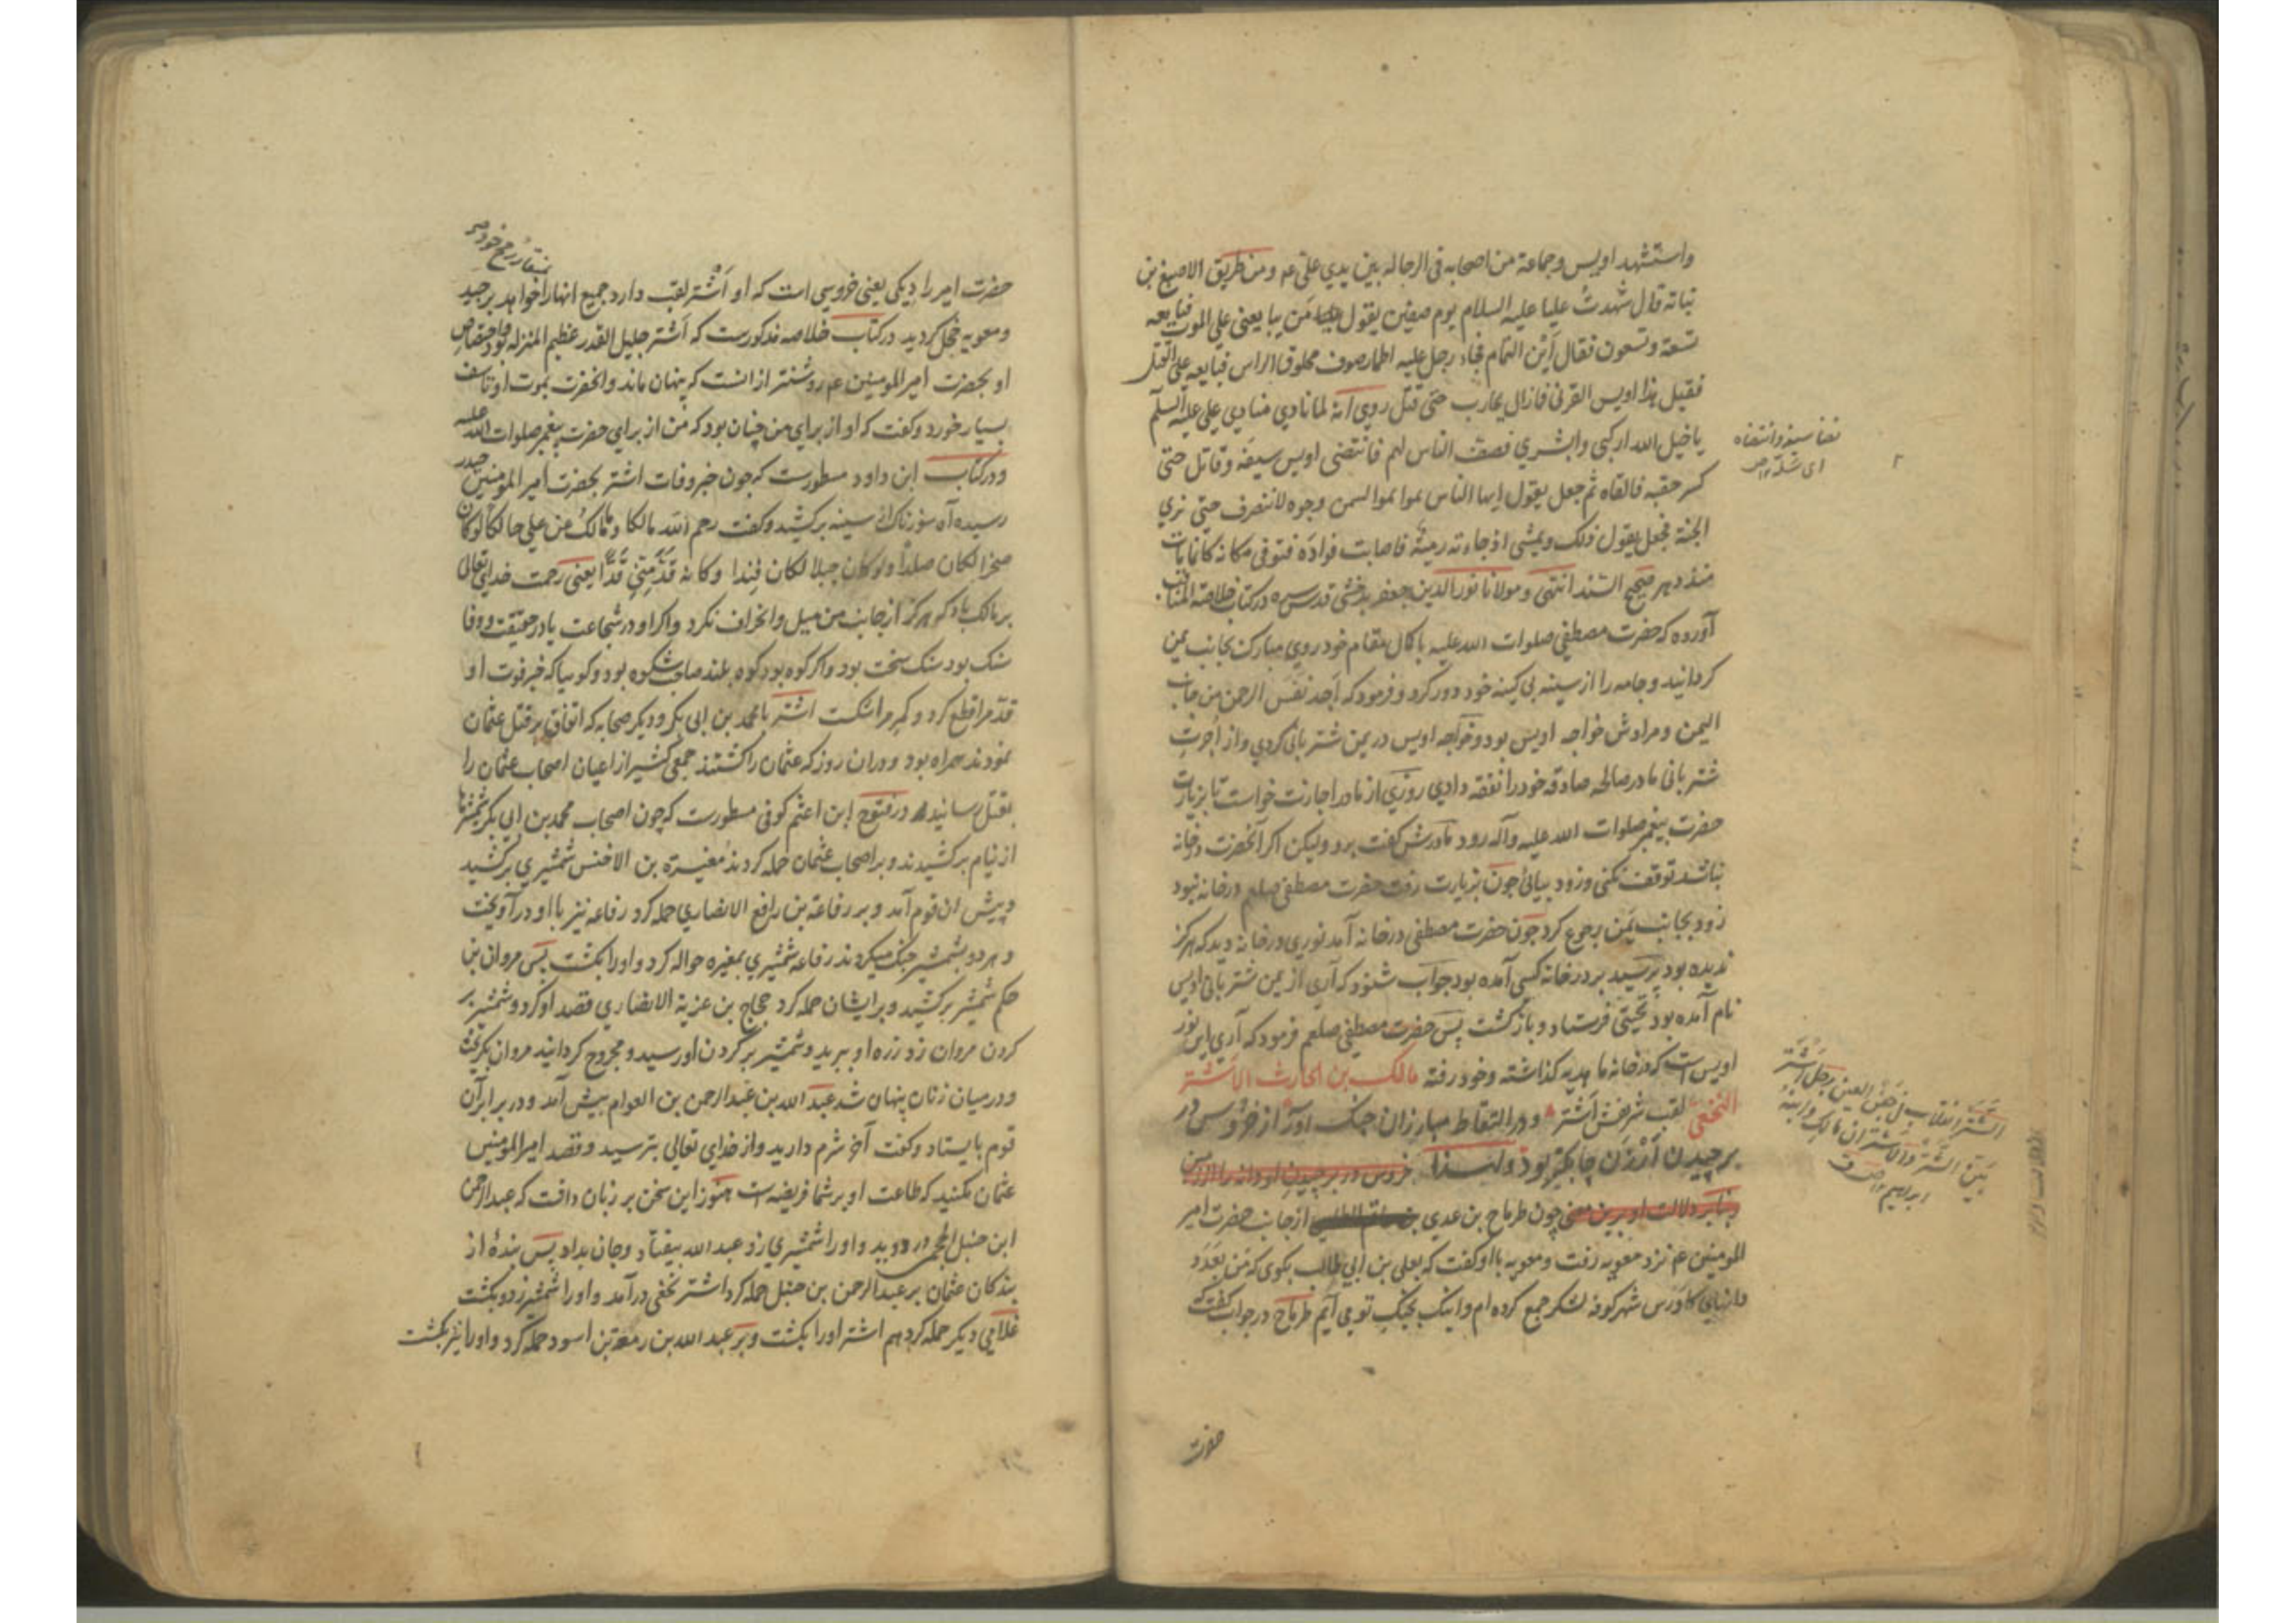 واستشهد اویس وجماعة من اصحابه فی الرجالة بین یدی علی عم ومن طریق الاصبغ بن
نباتة قال شهدتُ علیا علیه السلام یوم صفین یقول مَن یبایعنی علی الموت فبایعه
تسعة وتسعون فقال اَین التمام فجاء رجل علیه اطمار صوف محلوق الراس فبایعه علی القتل
فقیل هذا اویس القرنی فمازال یحارب حتی قتل روی انه لما نادی منادی علی علیه السلم
یا خیل الله ارکبی وابشری فصف الناس لهم فانتضی اویس سیفه وقاتل حتی
کسر فالقاه ثم جعل یقول ایها الناس تموا تموا لیتمن وجوه لاتنصرف حتی تری
الجنة فجعل یقول ذلک ویمشی اذ جاءته رمیة فاصابت فواده فتوفی مکانه کانما مات
منذ دهر صحیح السند انتهی ومولانا نورالدین جعفر بدخشی قدس سره در کتاب خلاصة المناقب
آورده که حضرت مصطفی صلوات الله علیه با کمال مقام خود روی مبارک بجانب یمن
کردانید وجامه را از سینه بی کینه خود دور کرد و فرمود که اَجد نَفَس الرحمن من جانب
الیمن ومرادش خواجه اویس بود وخواجه اویس در یمن شتربانی کردی واز اُجرت
شتربانی مادر صالحه صادقه خود را نفقه دادی روزی از مادر اجازت خواست تا بزیارت
حضرت پیغمبر صلوات الله علیه وآله رود مادرش گفت برو ولیکن اکر آنحضرت در خانه
نباشد توقف نکنی وزود بیائی جون بزیارت رفت حضرت مصطفی صلعم در خانه نبود
زود بجانب یمن رجوع کرد جون حضرت مصطفی در خانه آمد نوری در خانه دید که هرکز
ندیده بود پرسید بر در خانه کسی آمده بود جواب شنود که آری از یمن شتربانی اویس
نام آمده بود تحیتی فرستاد وبازکشت پس حضرت مصطفی صلعم فرمود که آری این نور
اویس است که در خانه ما هدیه کذاشته وخود رفته مالک بن الحارث الاشتر
النخعی لقب شریفش اَشتر ودر التقاط مبارزان جنک آور از خروس در
برچیدن اَرْزَن چابکتر بود ولهذا خروس در برچیدن او دانه را
وبنا بر دلالت او برین معنی چون طرماح بن عدی بن حاتم از جانب حضرت امیر
المومنین عم نزد معویه رفت ومعویه با او کفت که بعلی بن ابی طالب بکوی که مَن بعَدَد
دانهای کاوَرس شهر کوفه لشکر جمع کرده ام واینک بجنک تو می آیم طرماح در جواب کفت که
حضرت
نضا سیفه وانتضاه
ای سلّه ص
الشَتَر انقلاب فی جفن العین رجل اَشتر
بَیّن الشَتَر والاشتران مالک وابنه
ابراهیم ص ق
بمنقار رمح خود صح
حضرت امیر را دیکی یعنی خروسی است که او اَشتر لقب دارد جمیع انها را خواهد برجید
ومعویه خجل کردید در کتاب خلاصه مذکورست که اَشتر جلیل القدر عظیم المنزله بود واختصاص
او بحضرت امیرالمومنین عم روشنتر از انست که پنهان ماند وانحضرت بموت او تاسف
بسیار خورد وکفت که او از برای من چنان بود که من از برای حضرت پیغمبر صلوات الله علیه
ودر کتاب ابن داود مسطورست که جون خبر وفات اشتر بحضرت امیر المومنین حیدر
رسید آه سوزناک از سینه برکشید وکفت رحم الله مالکا وما مالکُ عز علی هالکا لوکان
صخرا لکان صلداً ولوکان جبلا لکان فِندا وکانه قَدَّ مِنّی قَدّاً یعنی رحمت خدای تعالی
بر مالک باد که هرکز از جانب من میل وانحراف نکرد واکر او در شجاعت یا در حقیقت ووفا
سنک بود سنک سخت بود واکر کوه بود کوه بلند صاف شکوه بود وکوییا که خبر فوت او
قدّ مرا قطع کرد وکمر مرا شکست اشتر با محمد بن ابی بکر ودیکر صحابه که اتفاق بر قتل عثمان
نمودند همراه بود ودران روز که عثمان را کشتند جمعی کثیر از اعیان اصحاب عثمان را
بقتل رسانید در فتوح ابن اعثم کوفی مسطورست که چون اصحاب محمد بن ابی بکر شمشیرها
از نیام برکشیدند وبر اصحاب عثمان حمله کردند مغیرة بن الاخنس شمشیری برکشید
وپیش ان قوم آمد وبر رفاعة بن رافع الانصاری حمله کرد رفاعه نیز با او درآویخت
وهردو بشمشیر جنک میکردند رفاعه شمشیری بمغیره حواله کرد واورا بکشت پس مروان بن
حکم شمشیر برکشید وبر ایشان حمله کرد حجاج بن عزیة الانصاری قصد او کرد وشمشیر بر
کردن مروان زد زره او ببرید وشمشیر بر کردن او رسید ومجروح کردانید مروان بکریخت
ودر میان زنان پنهان شد عبد الله بن عبد الرحمن بن العوام پیش آمد ودر برابر آن
قوم بایستاد وکفت آخر شرم دارید واز خدای تعالی بترسید وقصد امیرالمومنین
عثمان مکنید که طاعت او بر شما فریضه است هنوز این سخن بر زبان داشت که عبد الرحمن
ابن حنبل الجمحی در دوید واورا شمشیری زد عبد الله بیفتاد وجان بداد پس بندهٔ از
بندکان عثمان بر عبد الرحمن بن حنبل حمله کرد اشتر نخعی درآمد واورا شمشیر زد وبکشت
غلامی دیکر حمله کرد هم اشتر اورا بکشت وبر عبد الله بن زمعة بن اسود حمله کرد واورا نیز بکشت